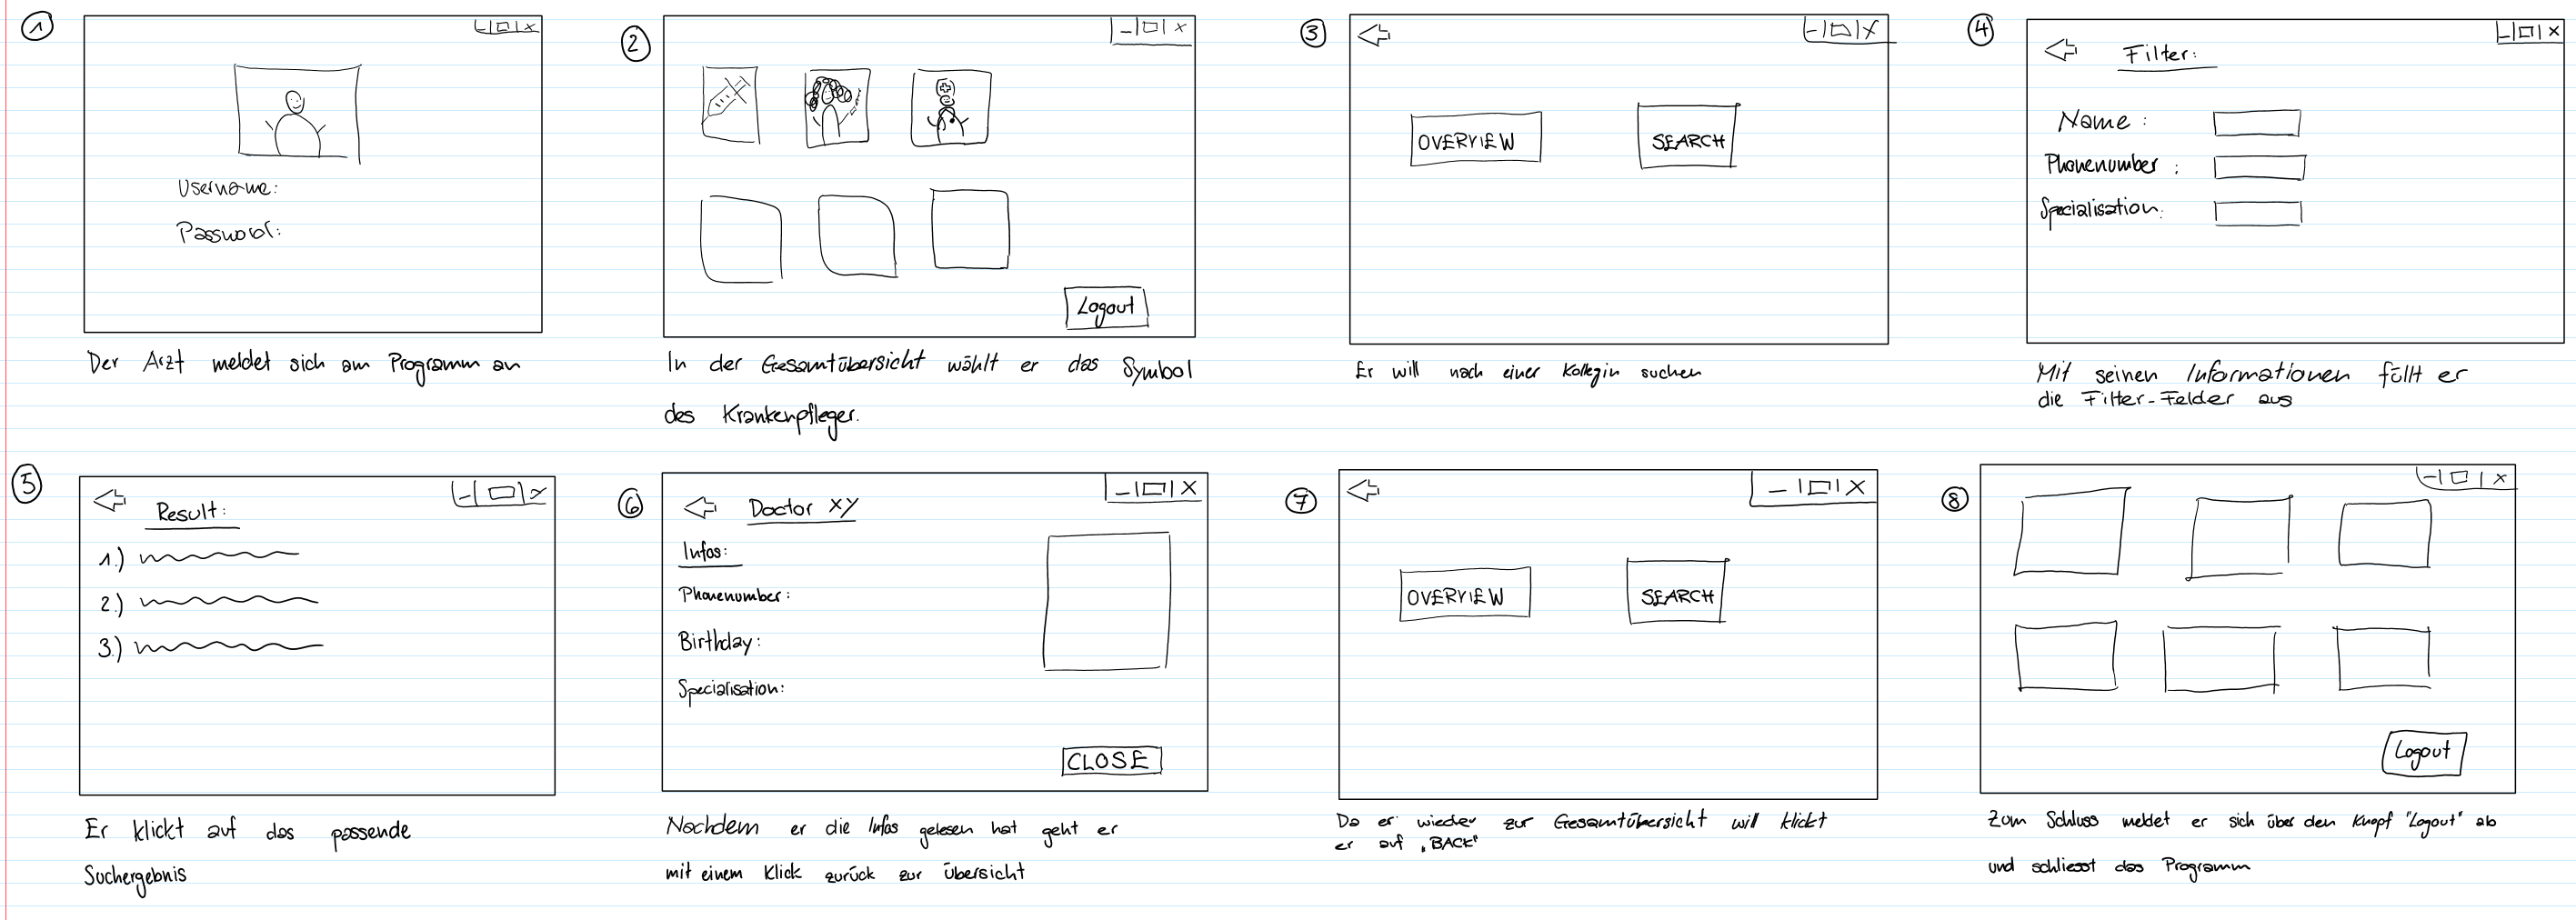 1
Username:
Password:
Der Arzt meldet sich am Programm an
2
Logout
In der Gesamtübersicht wählt er das Symbol
des Krankenpfleger.
3
OVERVIEW
SEARCH
Er will nach einer Kollegin suchen
4
Filter:
Name :
Phonenumber :
Specialisation:
Mit seinen Informationen füllt er
die Filter-Felder aus
5
Result:
1.)
2.)
3.)
Er klickt auf das passende
Suchergebnis
6
Doctor XY
Infos:
Phonenumber:
Birthday:
Specialisation:
CLOSE
Nachdem er die Infos gelesen hat geht er
mit einem Klick zurück zur Übersicht
7
OVERVIEW
SEARCH
Da er wieder zur Gesamtübersicht will klickt
er auf „BACK"
8
Logout
Zum Schluss meldet er sich über den Knopf "Logout" ab
und schliesst das Programm